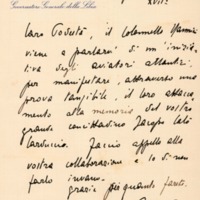 Governatore Generale della Libia
XVII
Caro Podestà, il Colonnello
viene a parlarti di un'inizia=
tiva degli aviatori atlantici
per manifestare, attraverso una
prova tangibile, il loro attacca=
mento alla memoria del vostro
grande concittadino Jacopo Calò
Carducci. Faccio appello alla
vostra collaborazione e so di non
farlo invano.
Grazie per quanto farete.